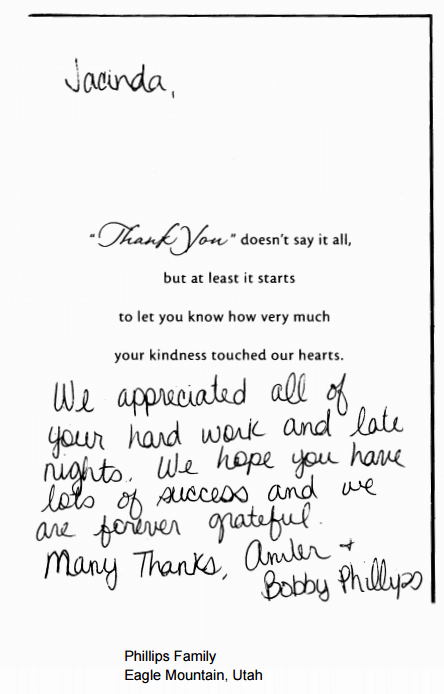 Jacinda,
"Thank You" doesn't say it all,
but at least it starts
to let you know how very much
your kindness touched our hearts.
We appreciated all of
your hard work and late
nights. We hope you have
lots of success and we
are forever grateful.
Many Thanks, +
Bobby Phillips
Phillips Family
Eagle Mountain, Utah